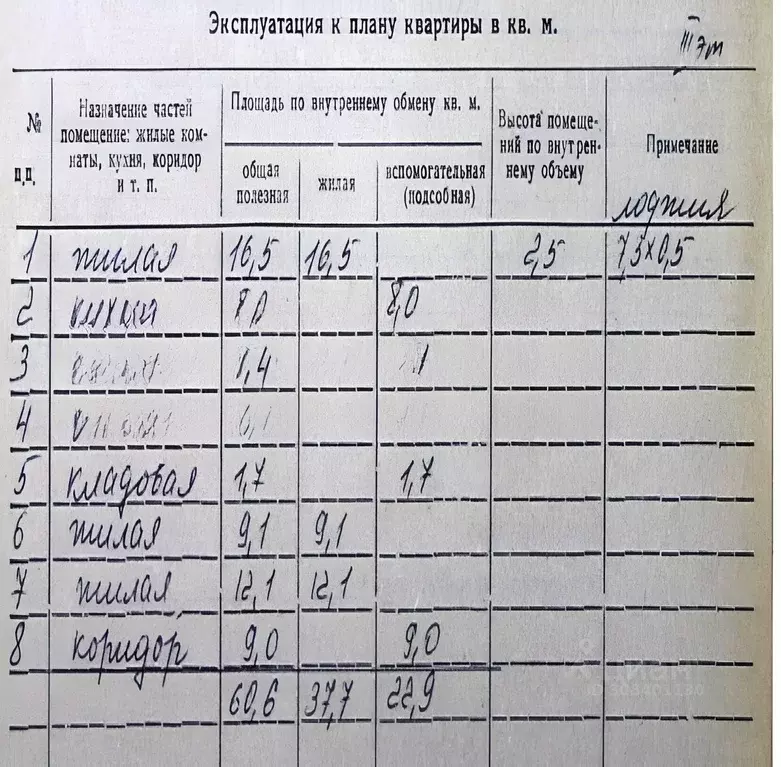 Эксплуатация к плану квартиры в кв. м.
III эт
№ п.п.
Назначение частей помещение: жилые комнаты, кухня, коридор и т. п.
Площадь по внутреннему обмену кв. м.
общая полезная
жилая
вспомогательная (подсобная)
Высота помещений по внутреннему объему
Примечание
лоджия
1 жилая 16,5 16,5 2,5 7,5×0,5
2 кухня 8,0 8,0
3 1,4
4
5 кладовая 1,7 1,7
6 жилая 9,1 9,1
7 жилая 12,1 12,1
8 коридор 9,0 9,0
60,6 37,7 22,9